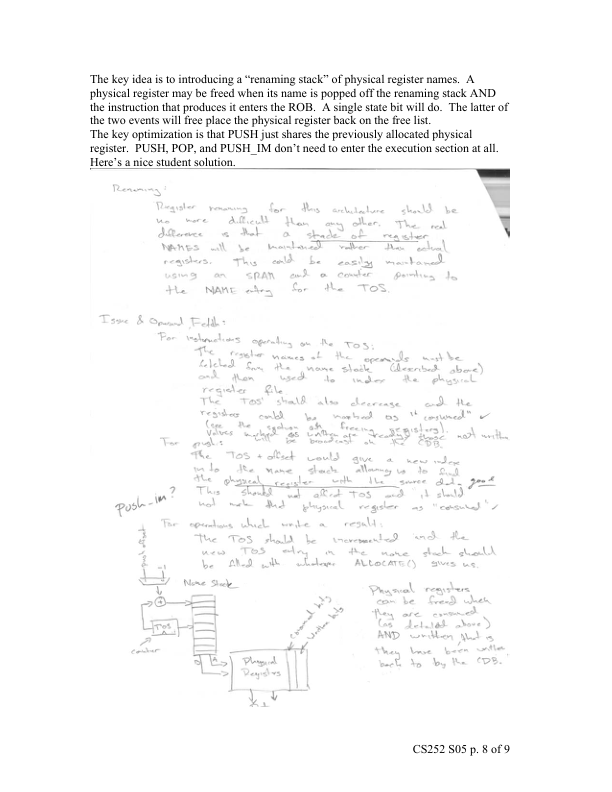 The key idea is to introducing a “renaming stack” of physical register names. A
physical register may be freed when its name is popped off the renaming stack AND
the instruction that produces it enters the ROB. A single state bit will do. The latter of
the two events will free place the physical register back on the free list.
The key optimization is that PUSH just shares the previously allocated physical
register. PUSH, POP, and PUSH_IM don’t need to enter the execution section at all.
Here’s a nice student solution.
Renaming:
Register renaming for this architecture should be
no more difficult than any other. The real
difference is that a stack of register
NAMES will be maintained rather than actual
registers. This could be easily maintained
using an SRAM and a counter pointing to
the NAME entry for the TOS.
Issue & Operand Fields:
For instructions operating on the TOS:
The register names of the operands must be
fetched from the name stack (described above)
and then used to index the physical
register file
The TOS should also decrease and the
register could be marked as "consumed" ✓
(see the section on freeing registers).
Values marked as written are ready, those not written
will be broadcast on the CDB.
For push:
The TOS + offset would give a new index
into the name stack allowing us to find
the physical register with the source data. good
This should not affect TOS and it should
not mark that physical register as "consumed" ✓
Push-im?
For operations which write a result:
The TOS should be incremented and the
new TOS entry in the name stack should
be filled with whatever ALLOCATE() gives us.
push offset
-1
Name Stack
+
TOS
counter
Physical
Registers
consumed bits
written bits
Physical registers
can be freed when
they are consumed
(as detailed above)
AND written, that is
they have been written
back to by the CDB.
CS252 S05 p. 8 of 9